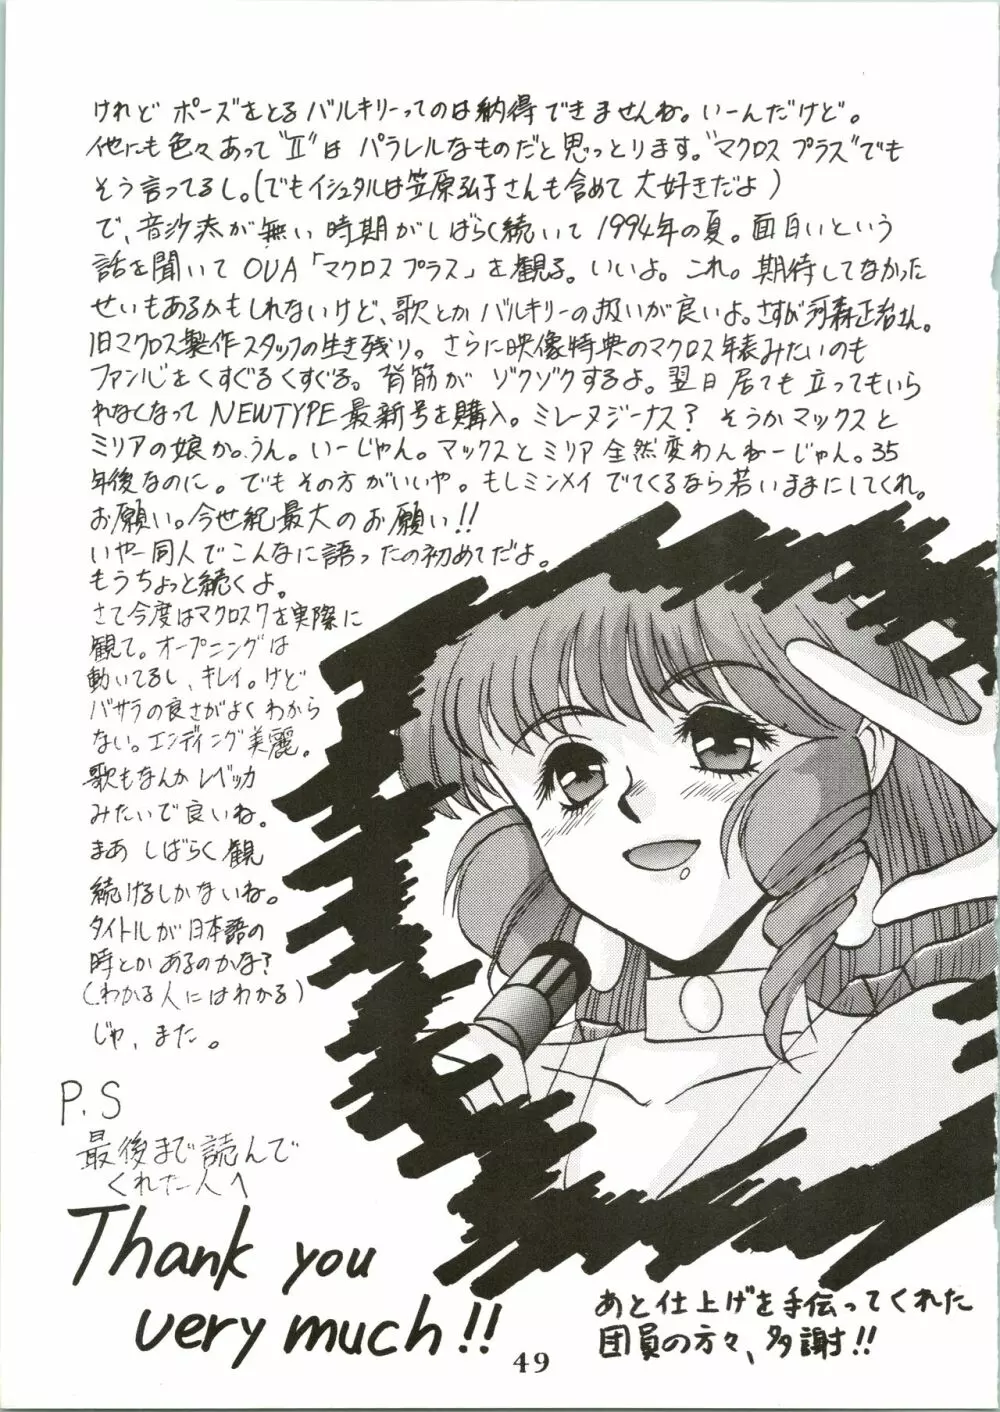 けれど ポーズをとる バルキリーってのは納得できませんね。いーんだけど。
他にも色々あって"II"は パラレルなものだと思っとります。"マクロス プラス"でも
そう言ってるし。(でもイシュタルは笠原弘子さんも含めて 大好きだよ)
で、音沙汰が無い 時期がしばらく続いて 1994年の夏。面白いという
話を聞いて OVA「マクロス プラス」を観る。いいよ。これ。期待してなかった
せいもあるかもしれないけど、歌とか バルキリーの扱いが良いよ。さすが河森正治さん。
旧マクロス製作スタッフの生き残り。さらに映像特典のマクロス年表みたいのも
ファン心をくすぐるくすぐる。背筋が ゾクゾクするよ。翌日 居ても立ってもいら
れなくなって NEWTYPE最新号を購入。ミレーヌジーナス? そうかマックスと
ミリアの娘か。うん。いーじゃん。マックスとミリア全然変わんねーじゃん。35
年後なのに。でもその方がいいや。もしミンメイ でてくるなら若いままにしてくれ。
お願い。今世紀最大のお願い!!
いやー同人でこんなに語ったの初めてだよ。
もうちょっと続くよ。
さて今度はマクロス7を実際に
観て。オープニングは
動いてるし、キレイ。けど
バサラの良さがよくわから
ない。エンディング美麗。
歌もなんか レベッカ
みたいで良いね。
まあ しばらく観
続けるしかないね。
タイトルが日本語の
時とかあるのかな?
(わかる人にはわかる)
じゃ、また。
P.S
最後まで読んで
くれた人へ
Thank you
very much!!
あと仕上げを手伝ってくれた
団員の方々、多謝!!
49